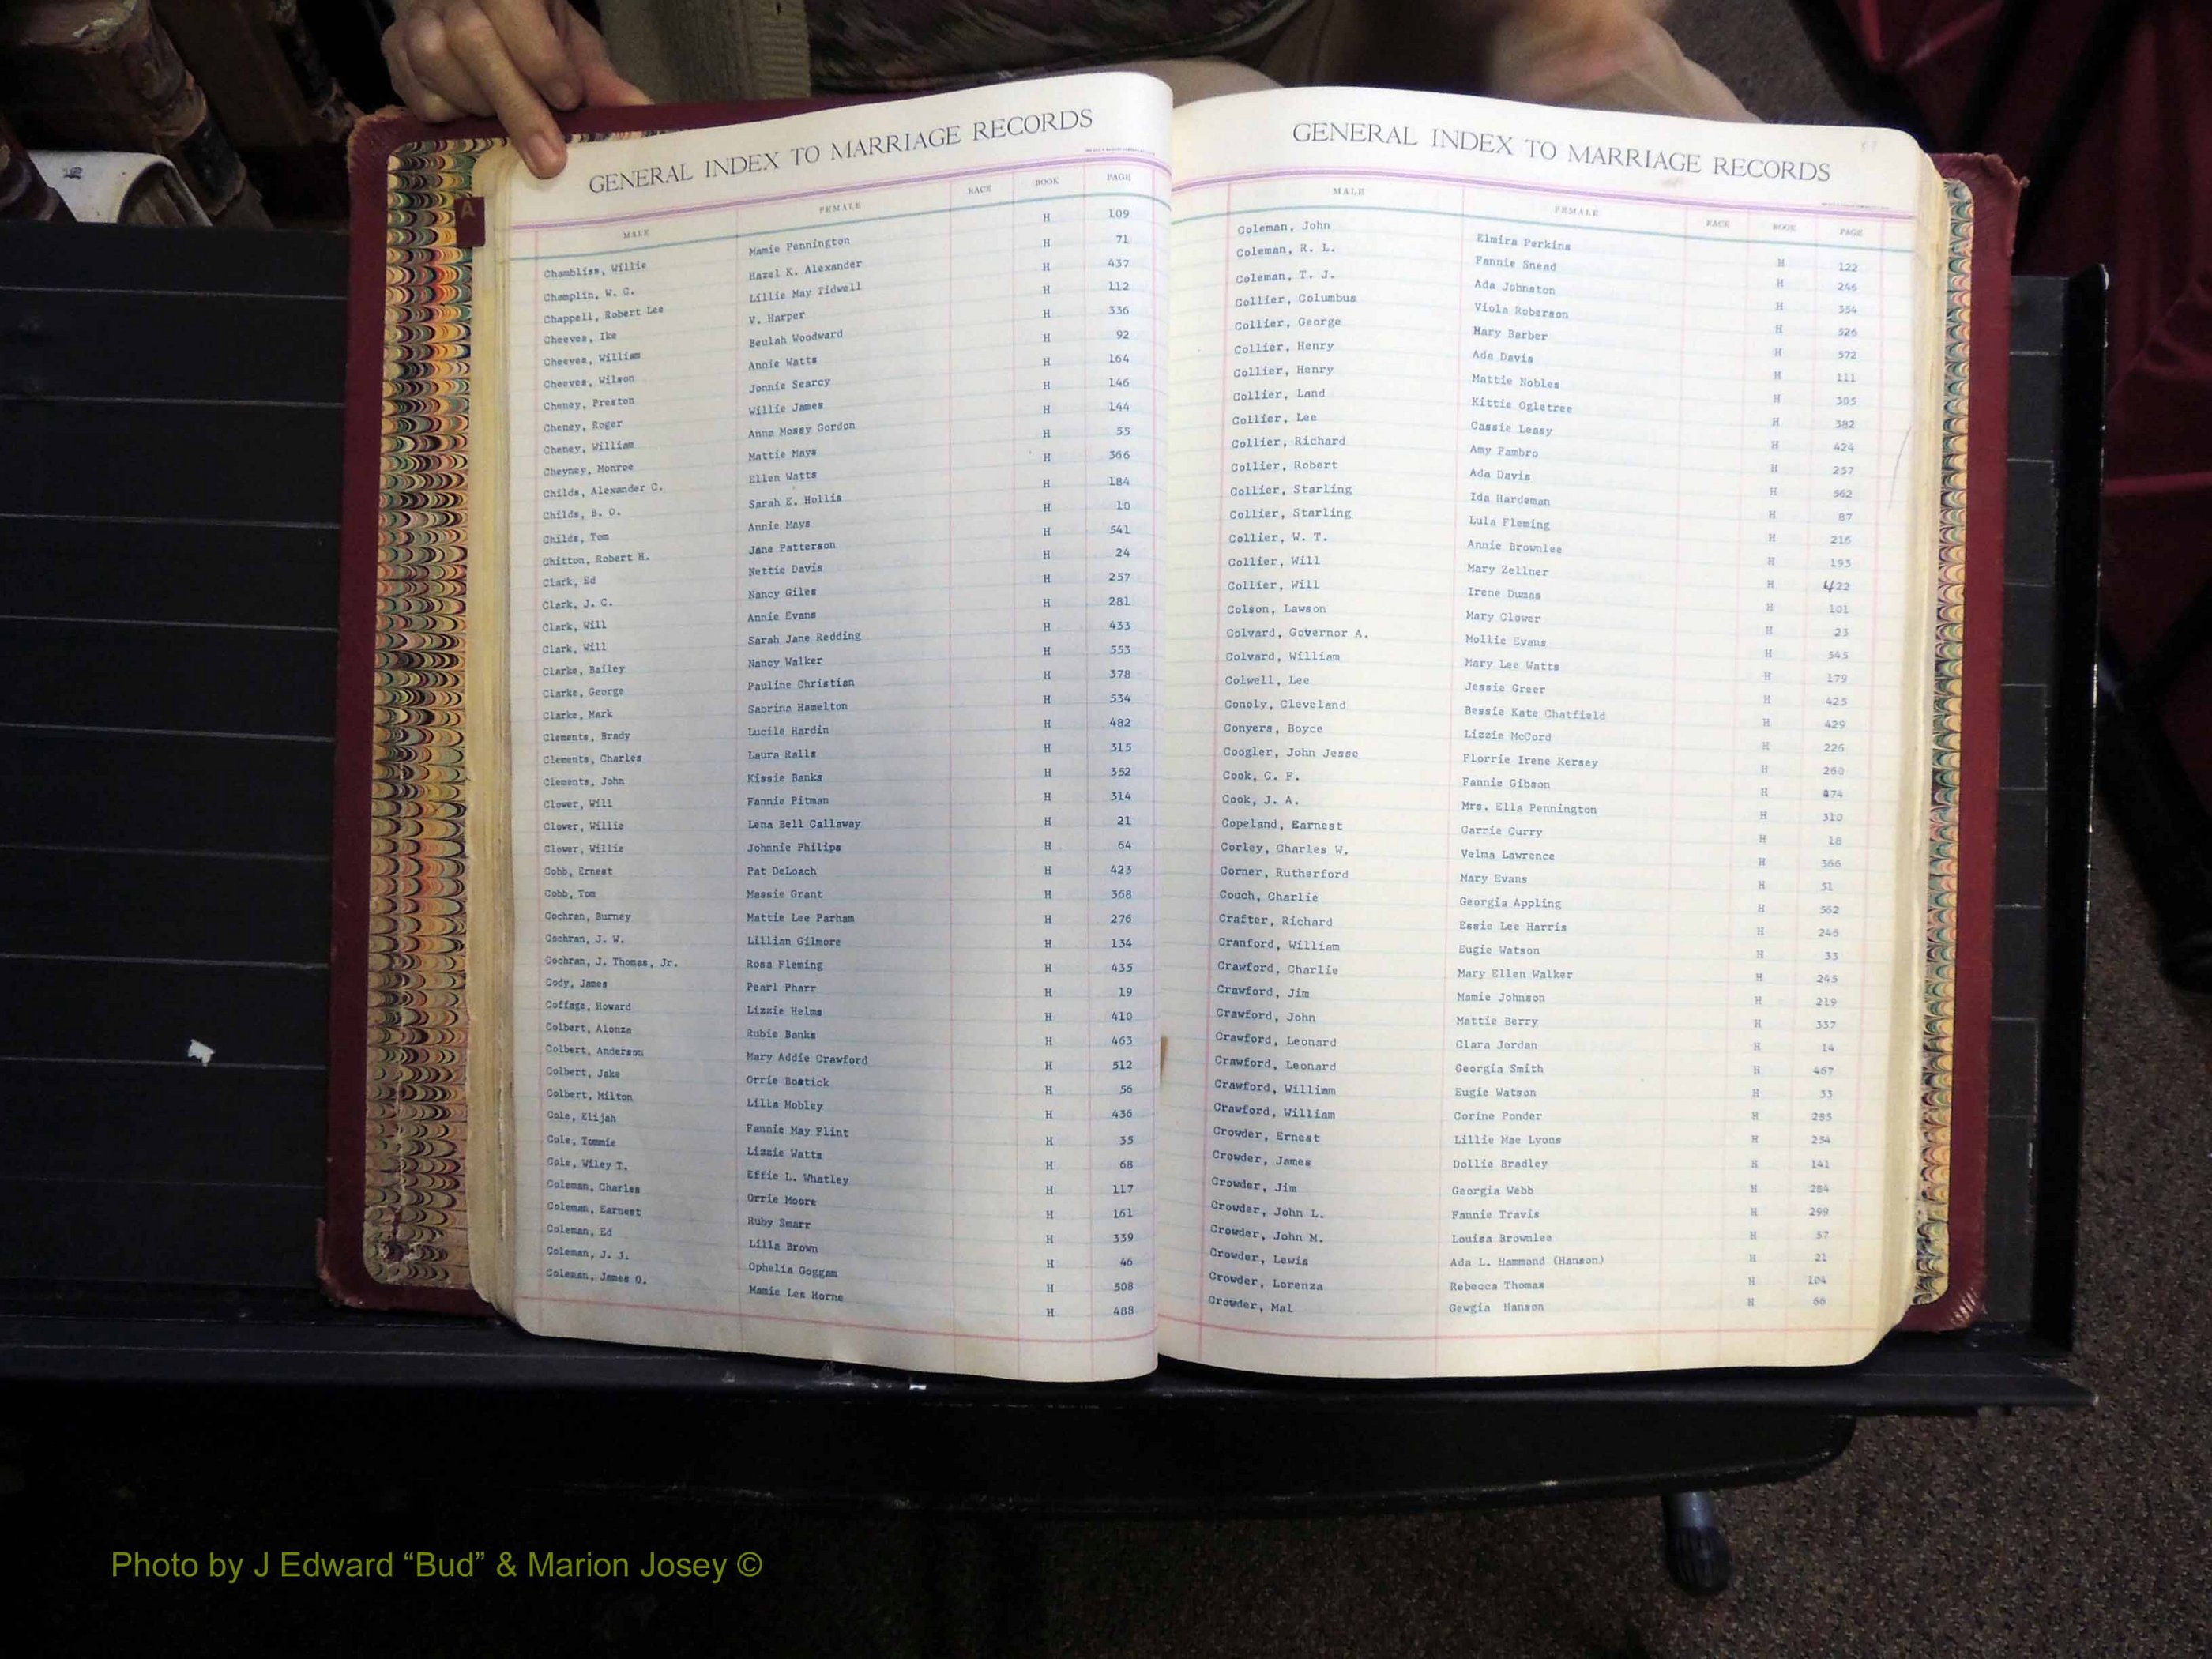 GENERAL INDEX TO MARRIAGE RECORDS
MALE FEMALE RACE BOOK PAGE
Chambliss, Willie Mamie Pennington H 109
Champlin, W. C. Hazel K. Alexander H 71
Chappell, Robert Lee Lillie May Tidwell H 437
Cheeves, Ike V. Harper H 112
Cheeves, William Beulah Woodward H 336
Cheeves, Wilson Annie Watts H 92
Cheney, Preston Jonnie Searcy H 164
Cheney, Roger Willie James H 146
Cheney, William Anna Mossy Gordon H 144
Cheyney, Monroe Mattie Mays H 55
Childs, Alexander C. Ellen Watts H 366
Childs, B. O. Sarah E. Hollis H 184
Childs, Tom Annie Mays H 10
Chitton, Robert H. Jane Patterson H 541
Clark, Ed Nettie Davis H 24
Clark, J. C. Nancy Giles H 257
Clark, Will Annie Evans H 281
Clark, Will Sarah Jane Redding H 433
Clarke, Bailey Nancy Walker H 553
Clarke, George Pauline Christian H 378
Clarke, Mark Sabrina Hamelton H 534
Clements, Brady Lucile Hardin H 482
Clements, Charles Laura Ralls H 315
Clements, John Kissie Banks H 352
Clower, Will Fannie Pitman H 314
Clower, Willie Lena Bell Callaway H 21
Clower, Willie Johnnie Philips H 64
Cobb, Ernest Pat DeLoach H 423
Cobb, Tom Massie Grant H 368
Cochran, Burney Mattie Lee Parham H 276
Cochran, J. W. Lillian Gilmore H 134
Cochran, J. Thomas, Jr. Rosa Fleming H 435
Cody, James Pearl Pharr H 19
Coffage, Howard Lizzie Helms H 410
Colbert, Alonza Rubie Banks H 463
Colbert, Anderson Mary Addie Crawford H 512
Colbert, Jake Orrie Bostick H 56
Colbert, Milton Lilla Mobley H 436
Cole, Elijah Fannie May Flint H 35
Cole, Tommie Lizzie Watts H 68
Cole, Wiley T. Effie L. Whatley H 117
Coleman, Charles Orrie Moore H 161
Coleman, Earnest Ruby Smarr H 339
Coleman, Ed Lilla Brown H 46
Coleman, J. J. Ophelia Goggam H 508
Coleman, James O. Mamie Lee Horne H 488
GENERAL INDEX TO MARRIAGE RECORDS
MALE FEMALE RACE BOOK PAGE
Coleman, John Elmira Perkins H 122
Coleman, R. L. Fannie Snead H 246
Coleman, T. J. Ada Johnston H 354
Collier, Columbus Viola Roberson H 526
Collier, George Mary Barber H 572
Collier, Henry Ada Davis H 111
Collier, Henry Mattie Nobles H 305
Collier, Land Kittie Ogletree H 382
Collier, Lee Cassie Leasy H 424
Collier, Richard Amy Fambro H 257
Collier, Robert Ada Davis H 562
Collier, Starling Ida Hardeman H 87
Collier, Starling Lula Fleming H 216
Collier, W. T. Annie Brownlee H 195
Collier, Will Mary Zellner H 422
Collier, Will Irene Dumas H 101
Colson, Lawson Mary Clower H 23
Colvard, Governor A. Mollie Evans H 545
Colvard, William Mary Lee Watts H 179
Colwell, Lee Jessie Greer H 425
Conoly, Cleveland Bessie Kate Chatfield H 429
Conyers, Boyce Lizzie McCord H 226
Coogler, John Jesse Florrie Irene Kersey H 260
Cook, C. F. Fannie Gibson H 474
Cook, J. A. Mrs. Ella Pennington H 310
Copeland, Earnest Carrie Curry H 18
Corley, Charles W. Velma Lawrence H 366
Corner, Rutherford Mary Evans H 51
Couch, Charlie Georgia Appling H 562
Crafter, Richard Essie Lee Harris H 245
Cranford, William Eugie Watson H 33
Crawford, Charlie Mary Ellen Walker H 245
Crawford, Jim Mamie Johnson H 219
Crawford, John Mattie Berry H 337
Crawford, Leonard Clara Jordan H 14
Crawford, Leonard Georgia Smith H 467
Crawford, William Eugie Watson H 33
Crawford, William Corine Ponder H 285
Crowder, Ernest Lillie Mae Lyons H 254
Crowder, James Dollie Bradley H 141
Crowder, Jim Georgia Webb H 284
Crowder, John L. Fannie Travis H 299
Crowder, John M. Louisa Brownlee H 37
Crowder, Lewis Ada L. Hammond (Hanson) H 21
Crowder, Lorenza Rebecca Thomas H 104
Crowder, Mal Gewgia Hanson H 66
A
Photo by J Edward “Bud” & Marion Josey ©